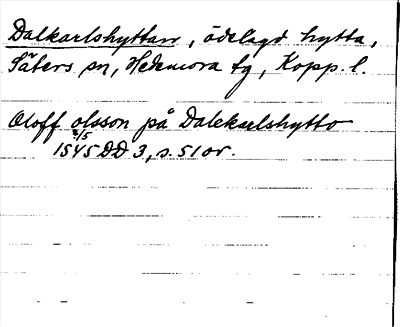 Dalkarlshyttan, ödelagd hytta,
Säters sn, Hedemora tg, Kopp. l.
Oloff olsson på Dalekarlshytto
2/5
1545 DD 3, s. 51 ov.